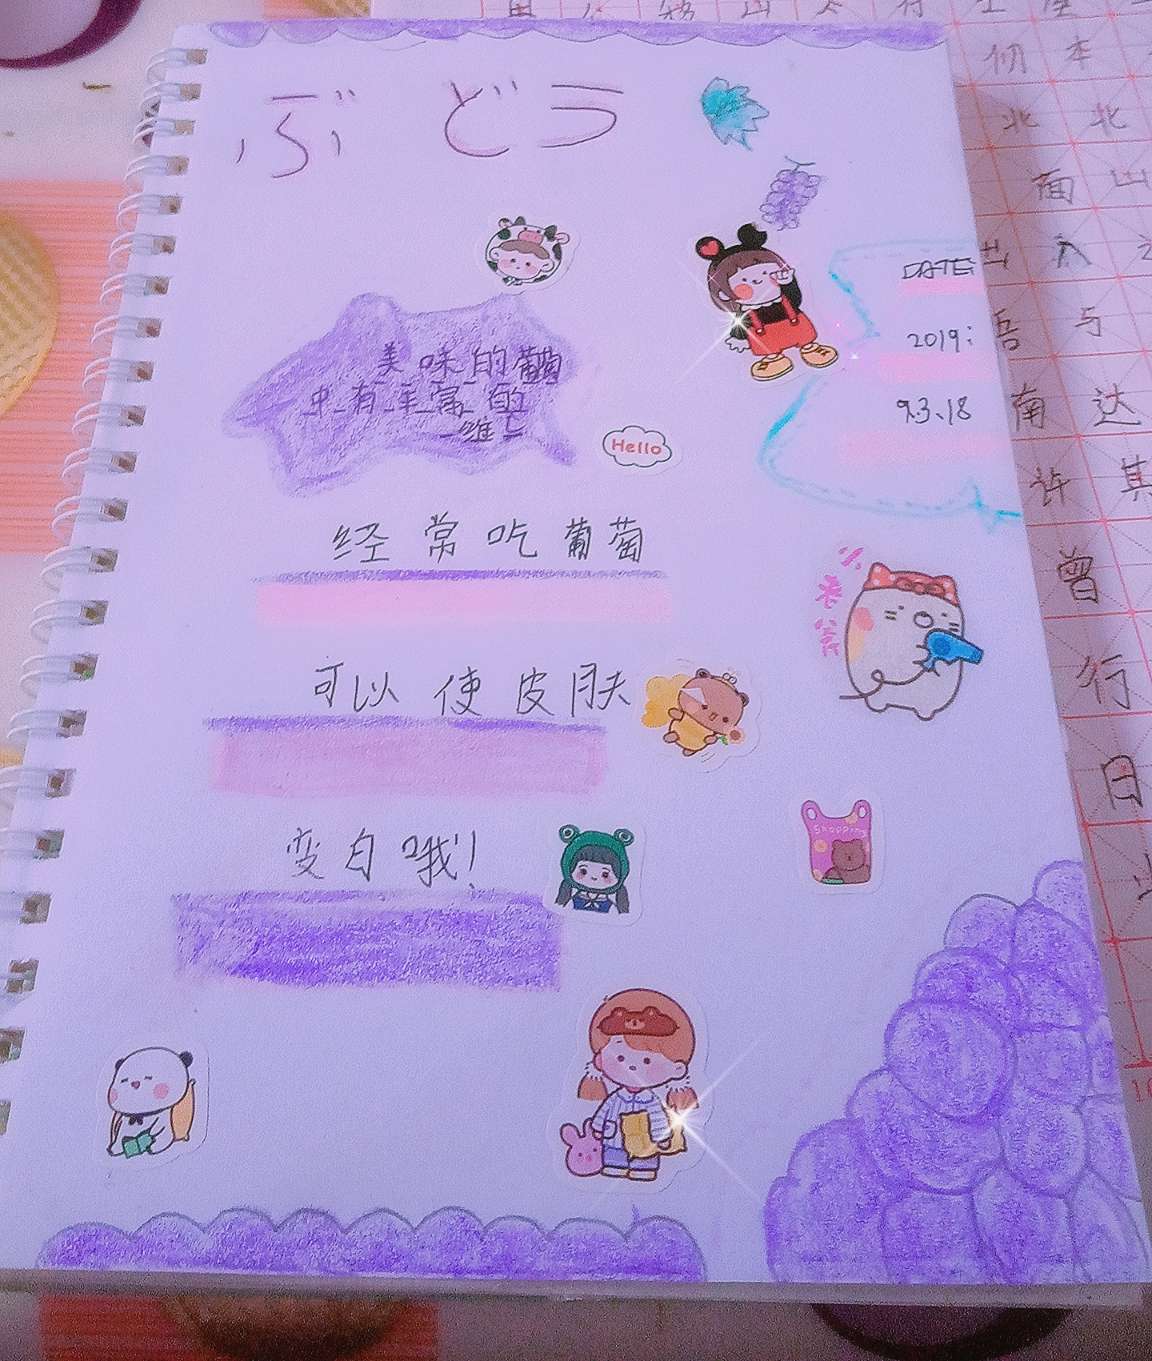 ぶどう
DATE:
2019:
9.3、18
美味的葡萄
中有丰富的
维
Hello
经常吃葡萄
小老爷
可以使皮肤
变白哦!
Shopping
仞 本
北 北
面 山
出 入
吾 与
南 达
许 其
曾
行
日